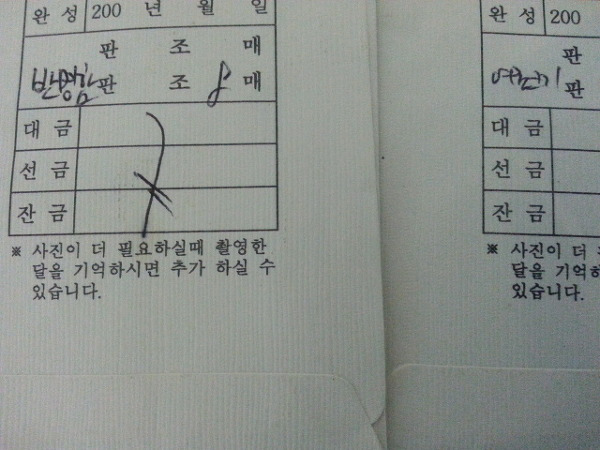 완 성 200 년 월 일
판 조 매
반명함판 조 8 매
대 금
선 금
잔 금
※ 사진이 더 필요하실때 촬영한
달을 기억하시면 추가 하실 수
있습니다.
완 성 200
판
판
대 금
선 금
잔 금
※ 사진이 더
달을 기억하
있습니다.